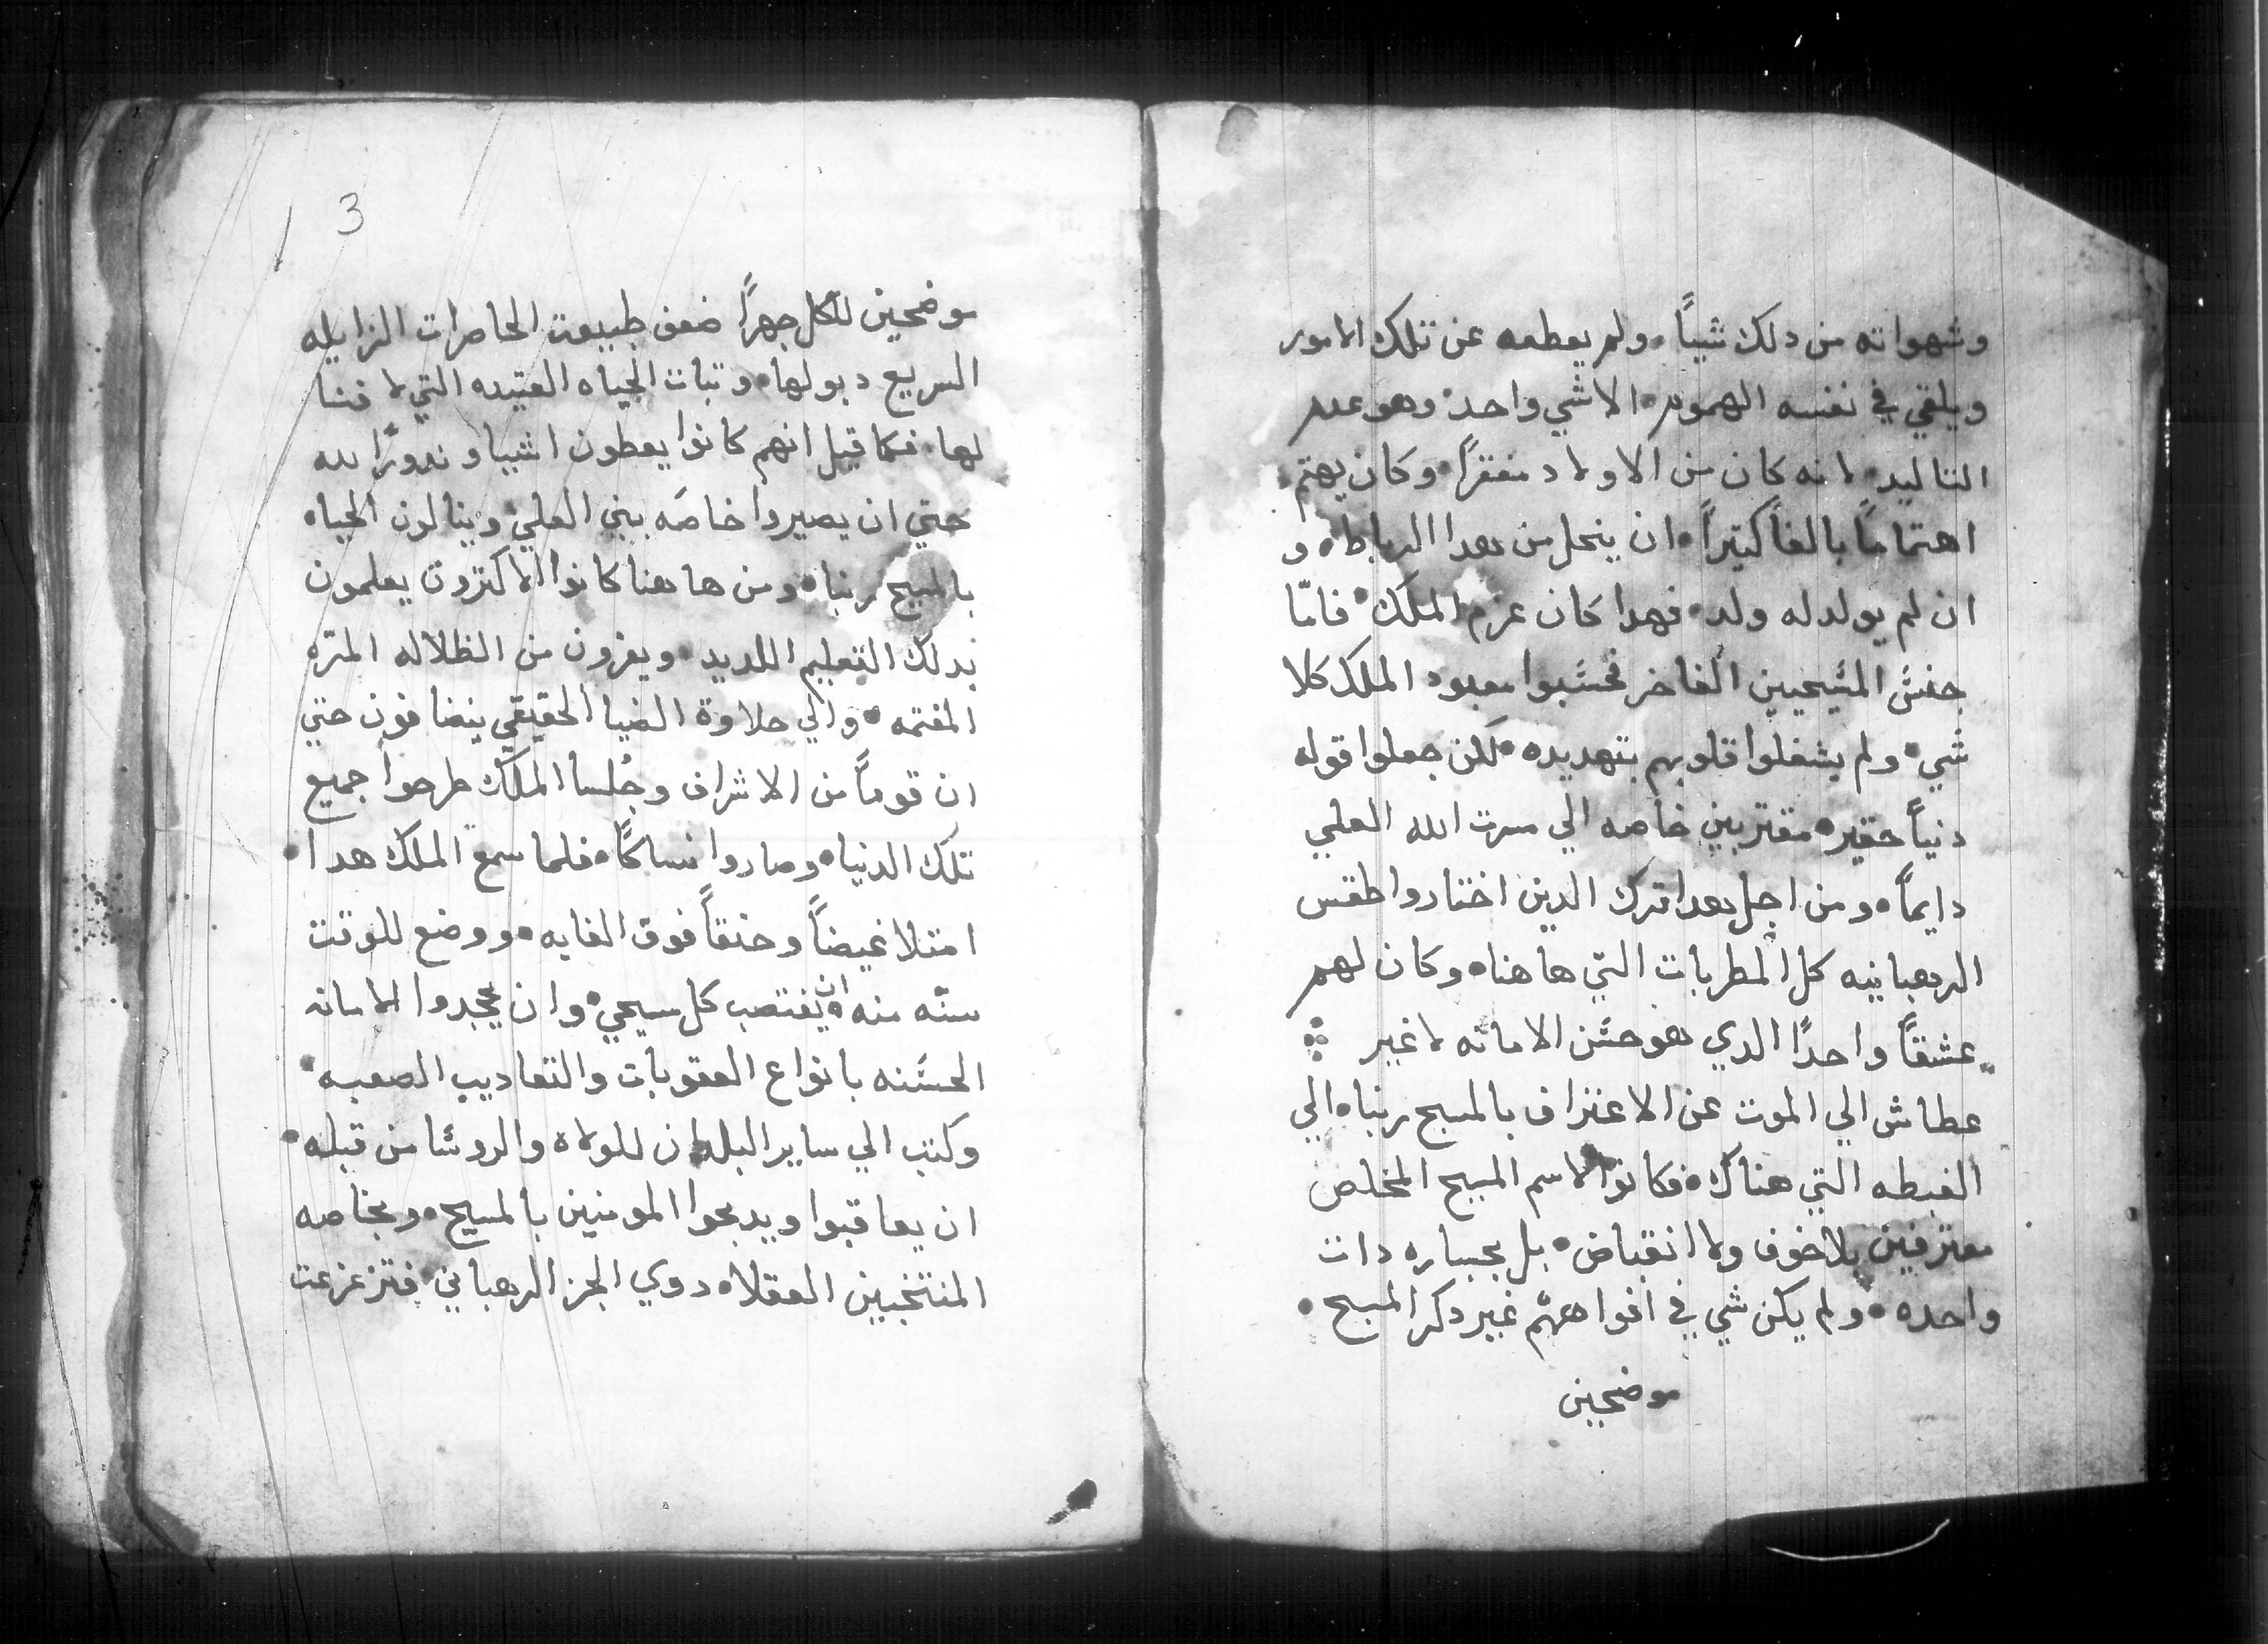 وشهواته من دلك شياً • ولم يعطعه عن تلك الامور
ويلقي في نفسه الهموم • الا شي واحد • وهو عدم
التاليد • لانه كان من الاولاد مفقراً • وكان يهتم
اهتماماً بالغاً كتيراً • ان ينحل من هدا الرباط • و
ان لم يولد له ولد • فهدا كان عزم الملك • فامّا
جنس المسيحيين الفاخر فحسبوا معبود الملك كلا
شي • ولم يشغلوا قلوبهم بتهديده • لكن جعلوا قوله
دنياً حقير • مقتربين خاصه الي مسرت الله العلي
دايماً • ومن اجل هدا ترك الدين اختاروا طقس
الرهبانيه كل المطربات التي هاهنا • وكان لهم
عشقاً واحدًا الدي هو حسن الامانه لا غير
عطاش الي الموت عن الاعتراف بالمسيح ربنا • الي
الغبطه التي هناك • فكانوا لاسم المسيح المخلص
معترفين بلا خوف ولا انقباض • بل بجساره دات
واحده • ولم يكن شي في افواههم غير دكر المسيح •
موضحين
3
موضحين للكل جهراً ضعف طبيعت الحاضرات الزايله
السريع دبولها • وتبات الحياه العتيده التي لا فنا
لها • فكما قيل انهم كانوا يعطون اشيا و ندورًا لله
حتي ان يصيروا خاصّه بيني العلي • وينالون الحياه
بالمسيح ربنا • ومن هاهنا كانوا الاكترون يعلمون
بدلك التعليم اللديد • ويفرون من الظلاله المرّه
المغتمه • والي حلاوة الضيا الحقيقي ينضافون حتي
ان قوماً من الاشراف وجُلسا الملك طرحوا جميع
تلك الدنيا • وصاروا نساكاً • فلما سمع الملك هدا •
امتلا غيضاً وحنقاً فوق الغايه • ووضع للوقت
سنّه منه • ان يغتصب كل مسيحي • وان يجحدوا الامانه
الحسنه بانواع العقوبات والتعاديب الصعبه •
وكتب الي ساير البلدان للولاه والروسا من قبله •
ان يعاقبوا ويدبحوا المومنين بالمسيح • وبخاصه
المنتخبين العقلا • دوي الحز الرهباني • فتزعزعت